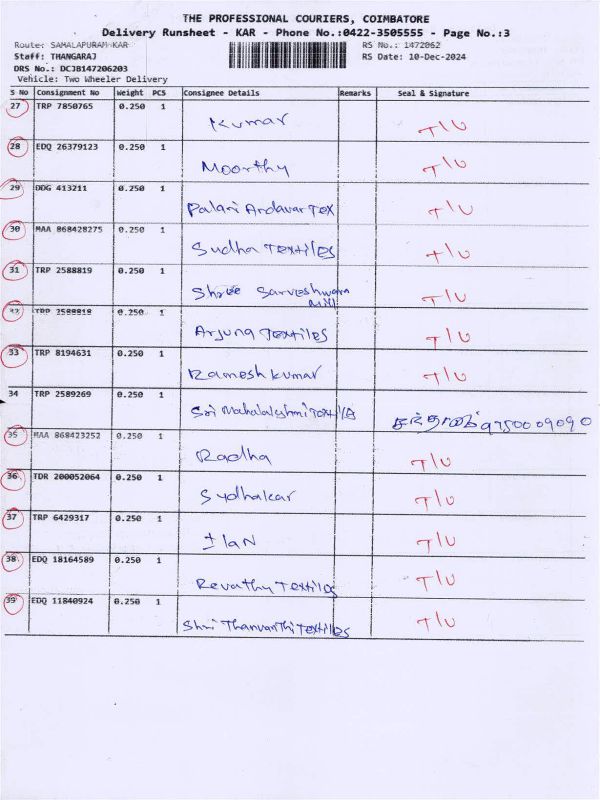 THE PROFESSIONAL COURIERS, COIMBATORE
Delivery Runsheet - KAR - Phone No.:0422-3505555 - Page No.:3
Route: SAMALAPURAM-KAR RS No.: 1472062
Staff: THANGARAJ RS Date: 10-Dec-2024
DRS No.: DCJB147206203
Vehicle: Two Wheeler Delivery
S No Consignment No Weight PCS Consignee Details Remarks Seal & Signature
27 TRP 7850765 0.250 1
Kumar T/U
28 EDQ 26379123 0.250 1
Moorthy T/U
29 DDG 413211 0.250 1
Palani Andavar Tex T/U
30 MAA 868428275 0.250 1
Sudha Textiles T/U
31 TRP 2588819 0.250 1
Shree Sarveshwara
Mill T/U
32 TRP 2588818 0.250 1
Arjuna Textiles T/U
33 TRP 8194631 0.250 1
Ramesh kumar T/U
34 TRP 2589269 0.250 1
Sri Mahalakshmi Textile 9750009090
35 MAA 868423252 0.250 1
Radha T/U
36 TDR 200052064 0.250 1
Sudhakar T/U
37 TRP 6429317 0.250 1
T/U
38 EDQ 18164589 0.250 1
Revathy Textiles T/U
39 EDQ 11840924 0.250 1
Shri Thanvanthi Textiles T/U